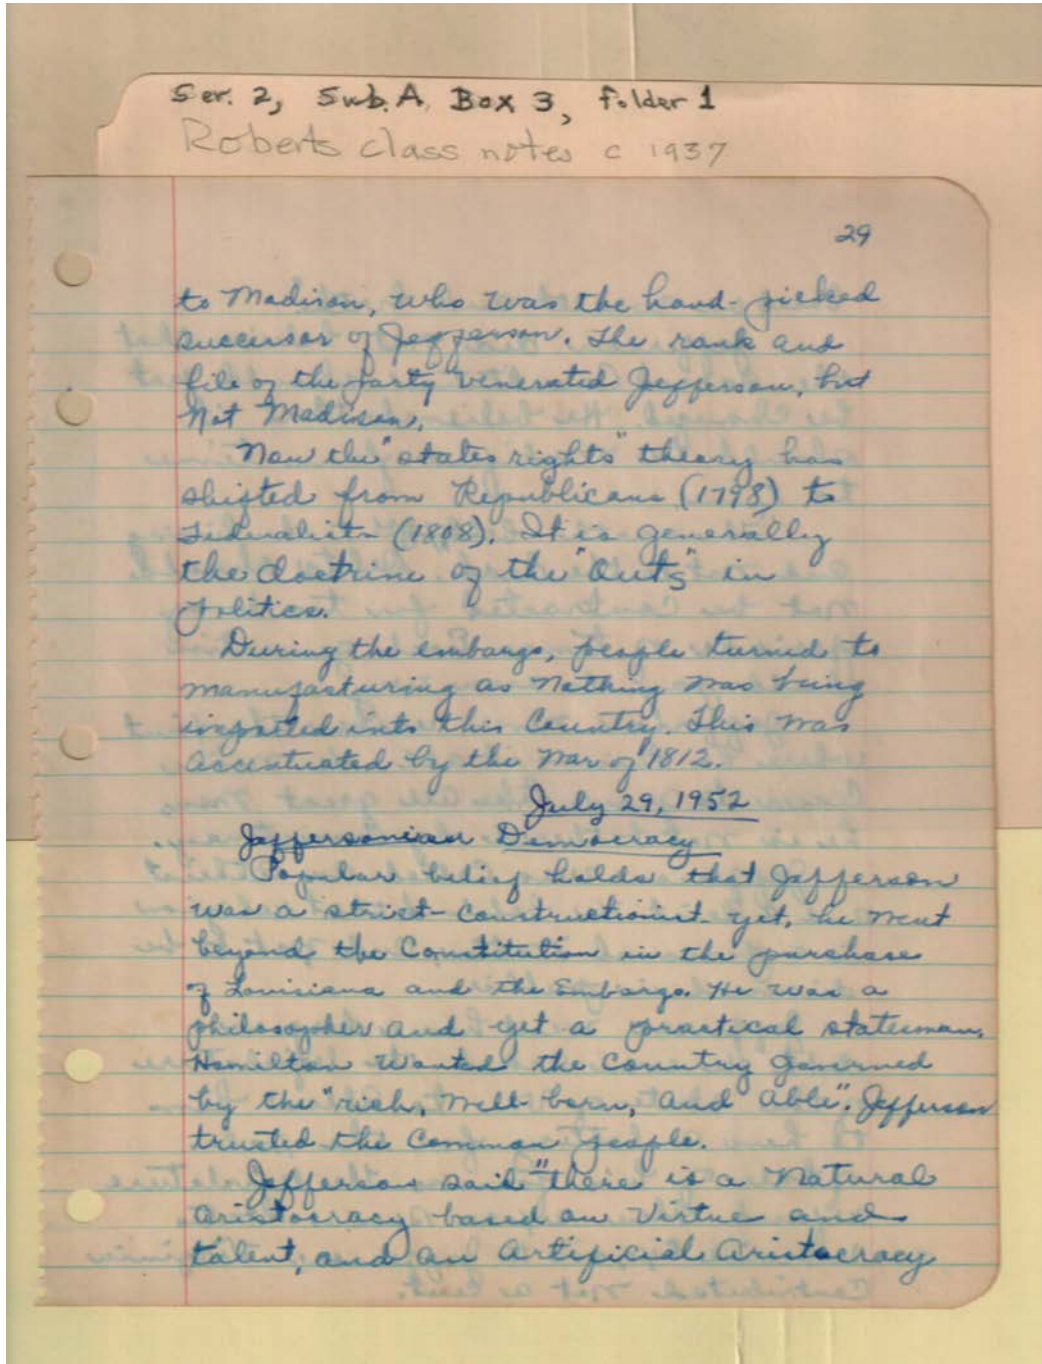 Ser. 2, Sub. A, Box 3, folder 1
Roberts class notes c 1937
29
to Madison, who was the hand-picked
successor of Jefferson. The rank and
file of the party venerated Jefferson, but
not Madison.
Now the "states rights" theory has
shifted from Republicans (1798) to
Federalists (1808). It is generally
the doctrine of the "Outs" in
politics.
During the embargo, people turned to
manufacturing as nothing was being
imported into this country. This was
accentuated by the War of 1812.
July 29, 1952
Jeffersonian Democracy
Popular belief holds that Jefferson
was a strict-constructionist yet, he went
beyond the Constitution in the purchase
of Louisiana and the Embargo. He was a
philosopher and yet a practical statesman.
Hamilton wanted the country governed
by the "rich, well-born, and able". Jefferson
trusted the common people.
Jefferson said "there is a natural
aristocracy based on virtue and
talent, and an artificial aristocracy